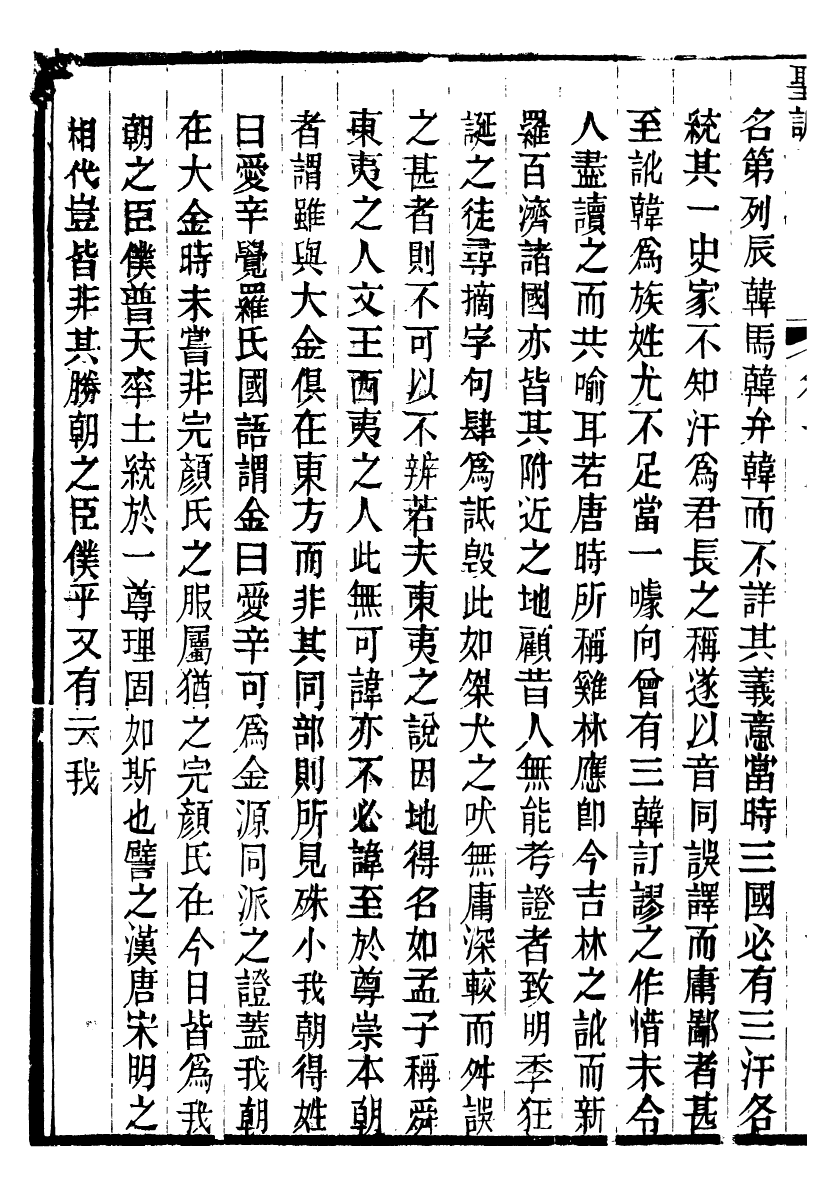 聖訓
名第列辰韓馬韓弁韓而不詳其義意當時三國必有三汗各
統其一史家不知汗為君長之稱遂以音同誤譯而庸鄙者甚
至訛韓為族姓尤不足當一噱向曾有三韓訂謬之作惜未令
人盡讀之而共喻耳若唐時所稱雞林應即今吉林之訛而新
羅百濟諸國亦皆其附近之地顧昔人無能考證者致明季狂
誕之徒尋摘字句肆為詆毀此如桀犬之吠無庸深較而舛誤
之甚者則不可以不辨若夫東夷之說因地得名如孟子稱舜
東夷之人文王西夷之人此無可諱亦不必諱至於尊崇本朝
者謂雖與大金俱在東方而非其同部則所見殊小我朝得姓
曰愛辛覺羅氏國語謂金曰愛辛可為金源同派之證蓋我朝
在大金時未嘗非完顏氏之服屬猶之完顏氏在今日皆為我
朝之臣僕普天率土統於一尊理固如斯也譬之漢唐宋明之
相代豈皆非其勝朝之臣僕乎又有云我